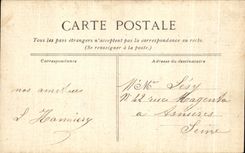 CARTE POSTALE
Tous les pays étrangers n'acceptent pas la correspondance au recto.
(Se renseigner à la poste.)
Correspondance
Adresse du destinataire
nos amitiés
Mme
No 42 rue Magenta
à Asnières
Seine